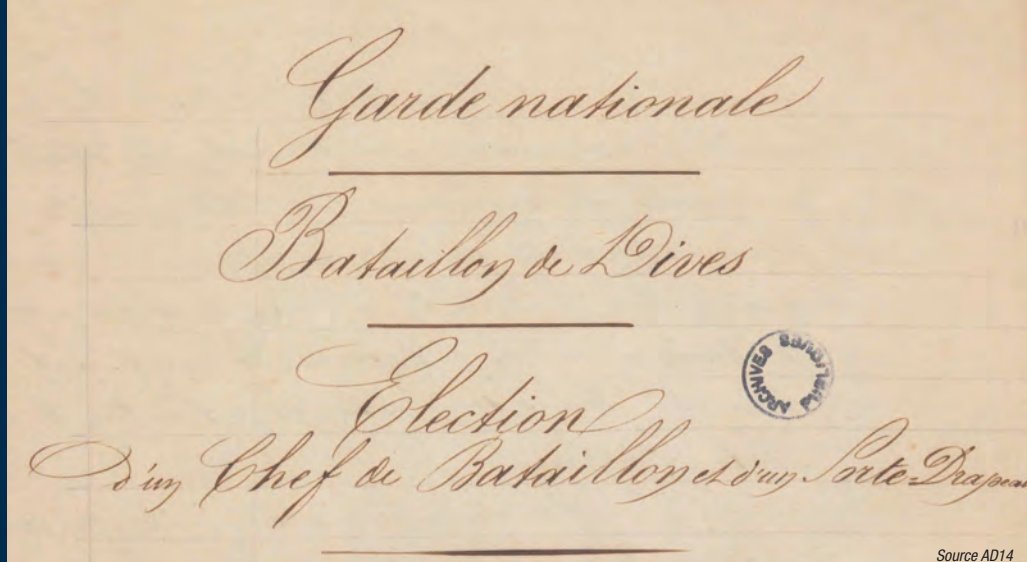 Garde nationale
Bataillon de Dives
Election
d'un Chef de Bataillon et d'un Porte-Drapeau
ARCHIVES PUBLIQUES
Source AD14